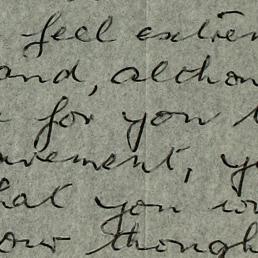 feel extrem
and, althou
for you t
vement, y
hat you w
our though